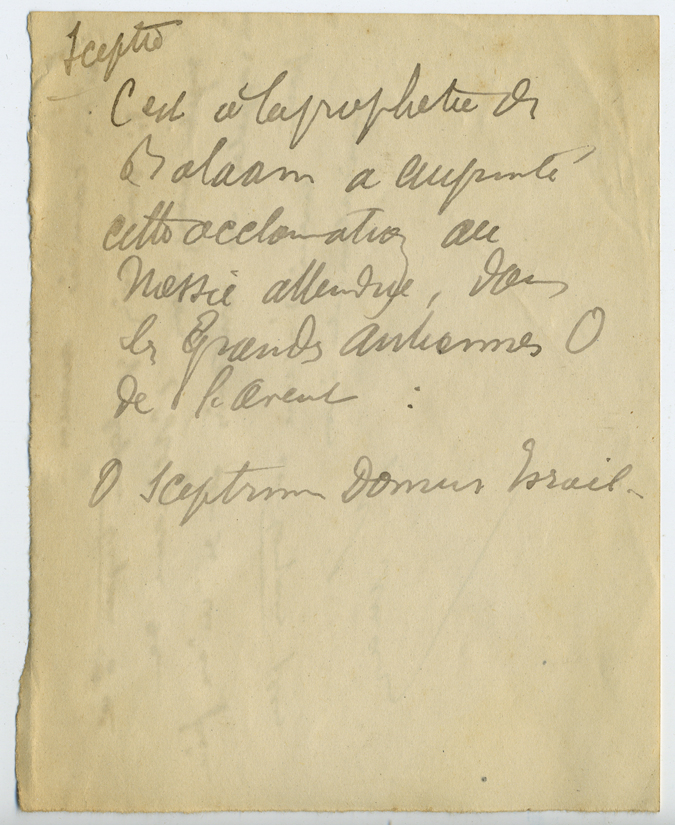 Sceptre
C'est à la prophetie de
Balaam a emprunté
cette acclamation au
Messie attendue, dans
les Grandes Antiennes O
de l'Avent :
O Sceptrum Domus Israil.